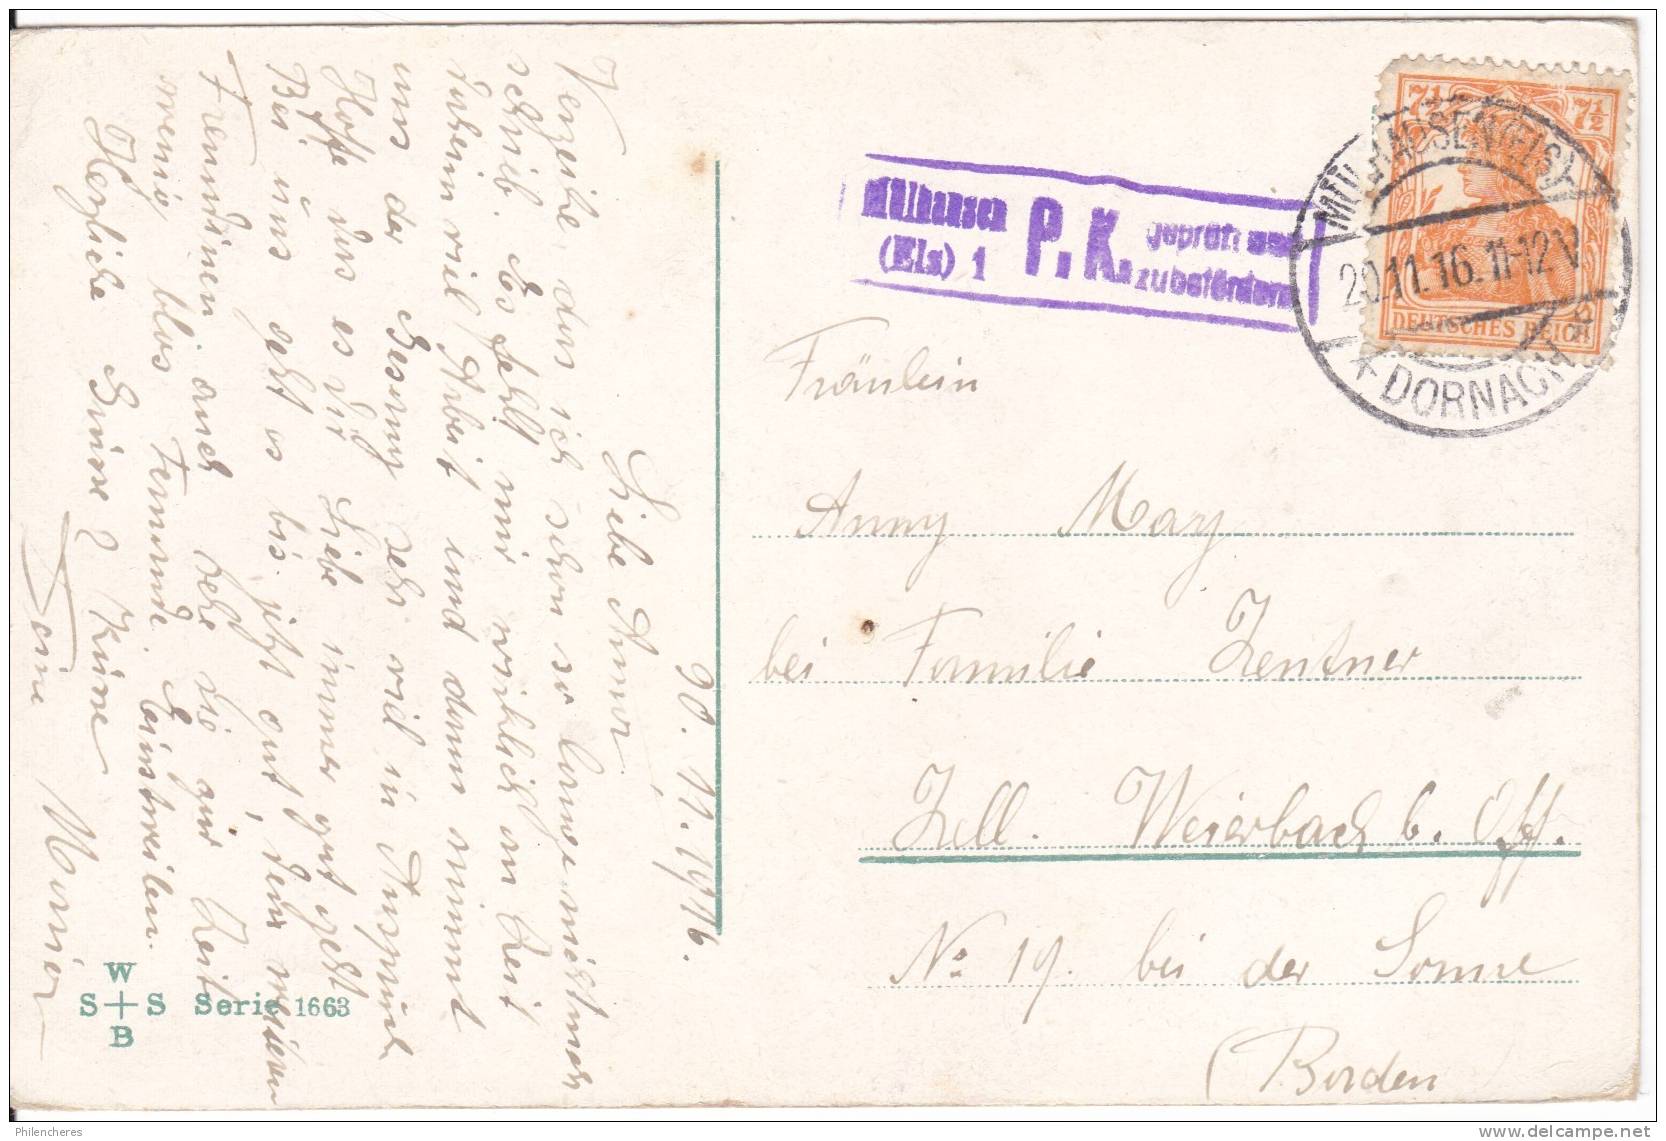 20.11.1916.
Liebe Anna,
Verzeihe, das ich schon so lange nicht mehr
schrieb. Es fehlt mir wirklich an Zeit
haben viel Arbeit und dann nimmt
uns der Gesang sehr viel in Anspruch
Hoffe das es Dir Liebe immer gut geht
Bei uns geht es bis jetzt gut,
Freundinen auch habe bis zur Zeit
wenig blos Fremde
Herzliche Grüsse & Küsse
Deine
W
S S Serie 1663
B
Mülhausen (Els) 1 P. K. geprüft und zu befördern
7½ 7½
DEUTSCHES REICH
MÜLHAUSEN (ELS)
20.11.16. 11-12 V
* DORNACH *
Fräulein
Anny Mary
bei Familie Zentner
Zell. Weierbach b. Off.
No 19. bei der Sonne
(Baden
Philencheres
www.delcampe.net